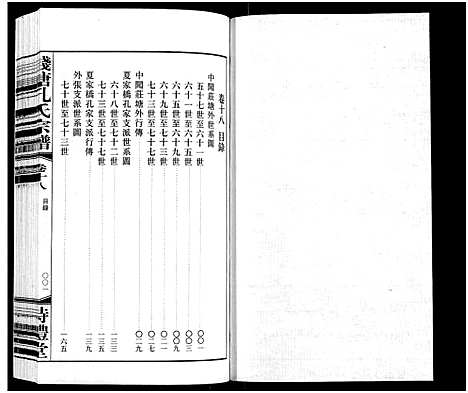 卷十八 目錄
中聞莊塘外世系圖
五十七世至六十一世 〇〇一
六十一世至六十五世 〇〇三
六十五世至六十九世 〇〇九
六十九世至七十三世 〇二一
七十三世至七十七世 〇二七
中聞莊塘外行傳 〇二九
夏家橋孔家支派世系圖
六十八世至七十二世 一三三
七十二世至七十七世
夏家橋孔家支派行傳 一三九
外張支派世系圖
七十世至七十三世 一六五
錢塘孔氏宗譜
卷十八
目錄
〇〇一
詩禮堂